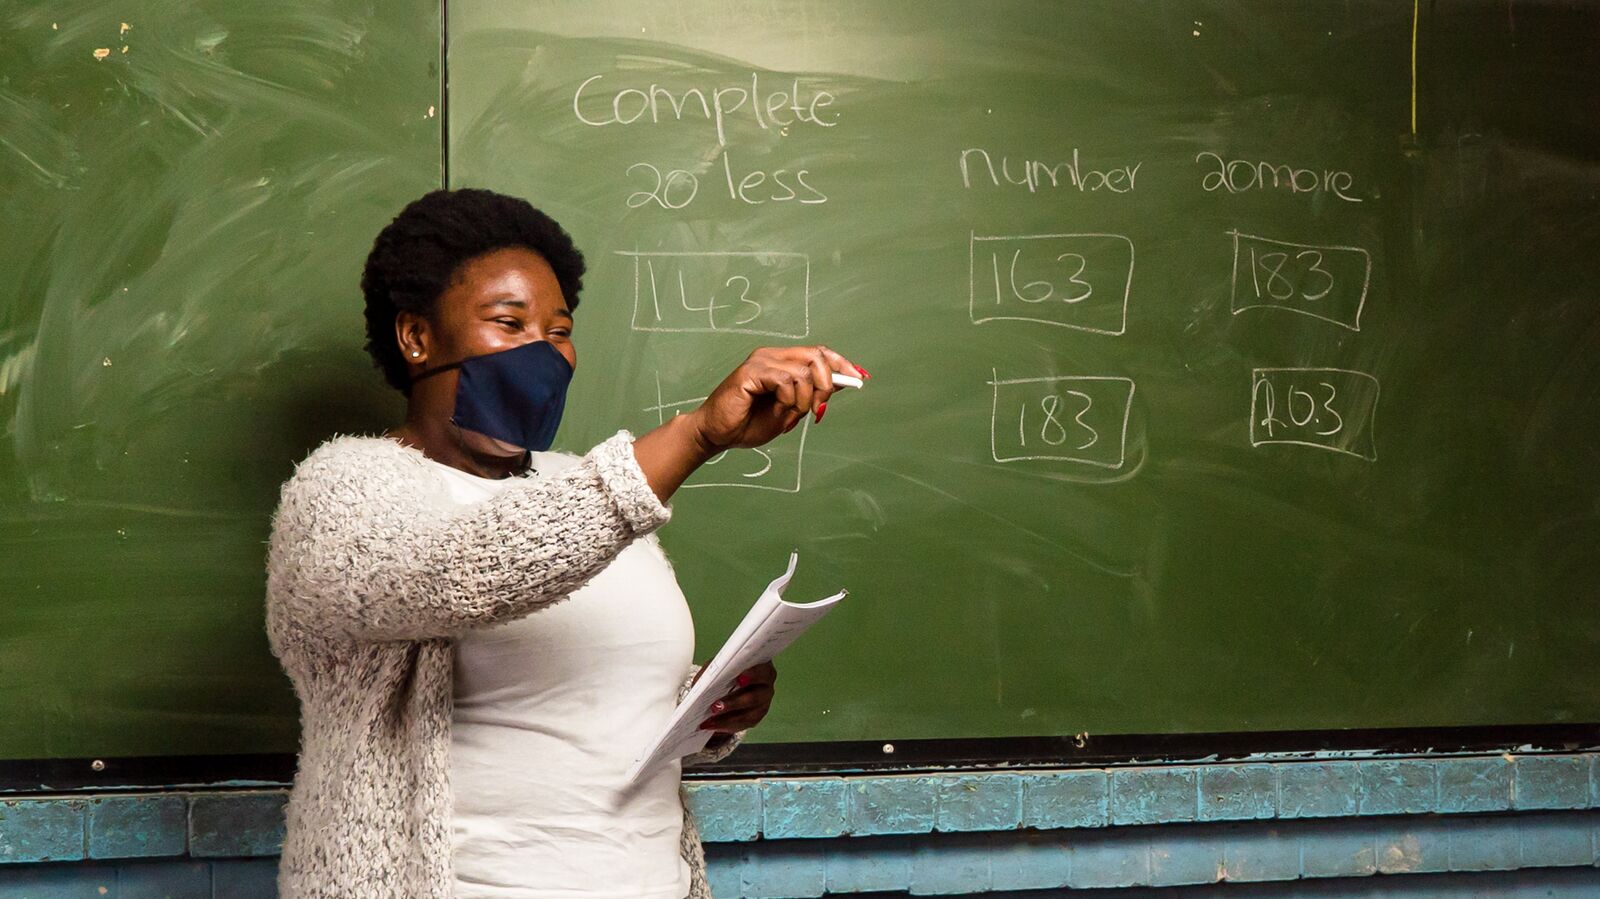 Complete
20 less number 20more
143 163 183
183 203